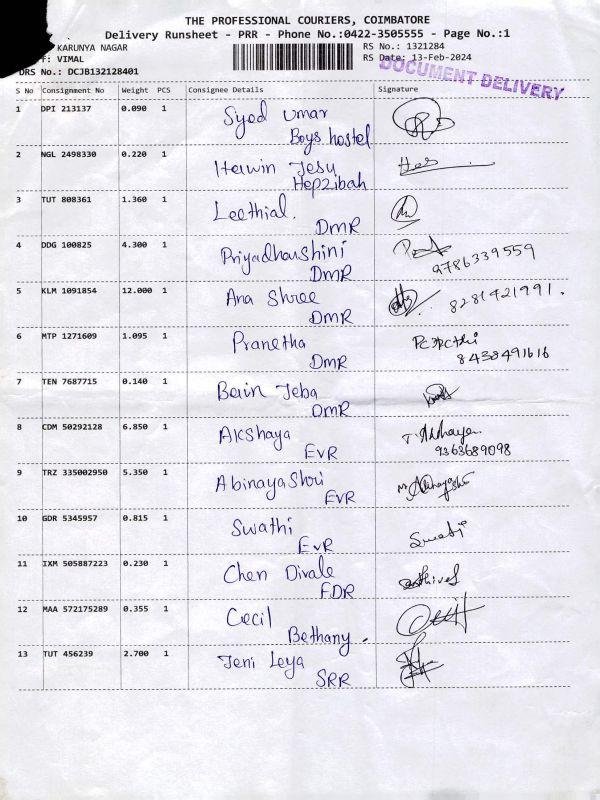 THE PROFESSIONAL COURIERS, COIMBATORE
Delivery Runsheet - PRR - Phone No.:0422-3505555 - Page No.:1
KARUNYA NAGAR RS No.: 1321284
F: VIMAL RS Date: 13-Feb-2024
DRS No.: DCJB132128401
DOCUMENT DELIVERY
S No Consignment No Weight PCS Consignee Details Signature
1 DPI 213137 0.090 1 Syed Umar
Boys hostel
2 NGL 2498330 0.220 1 Herwin Jesu
Hepzibah
3 TUT 808361 1.360 1 Leethial.
DMR
4 DDG 100825 4.300 1 Priyadharshini
DMR 9786339559
5 KLM 1091854 12.000 1 Ana Shree
DMR 8281421991.
6 MTP 1271609 1.095 1 Pranetha
DMR 8438491616
7 TEN 7687715 0.140 1 Berin Jeba
DMR
8 CDM 50292128 6.850 1 Akshaya T. Akshaya
EVR 9363689098
9 TRZ 335002950 5.350 1 Abinaya Shri
EVR
10 GDR 5345957 0.815 1 Swathi
EVR
11 IXM 505887223 0.230 1 Chen Divale
FDR
12 MAA 572175289 0.355 1 Cecil
Bethany.
13 TUT 456239 2.700 1 Jeni Leya
SRR